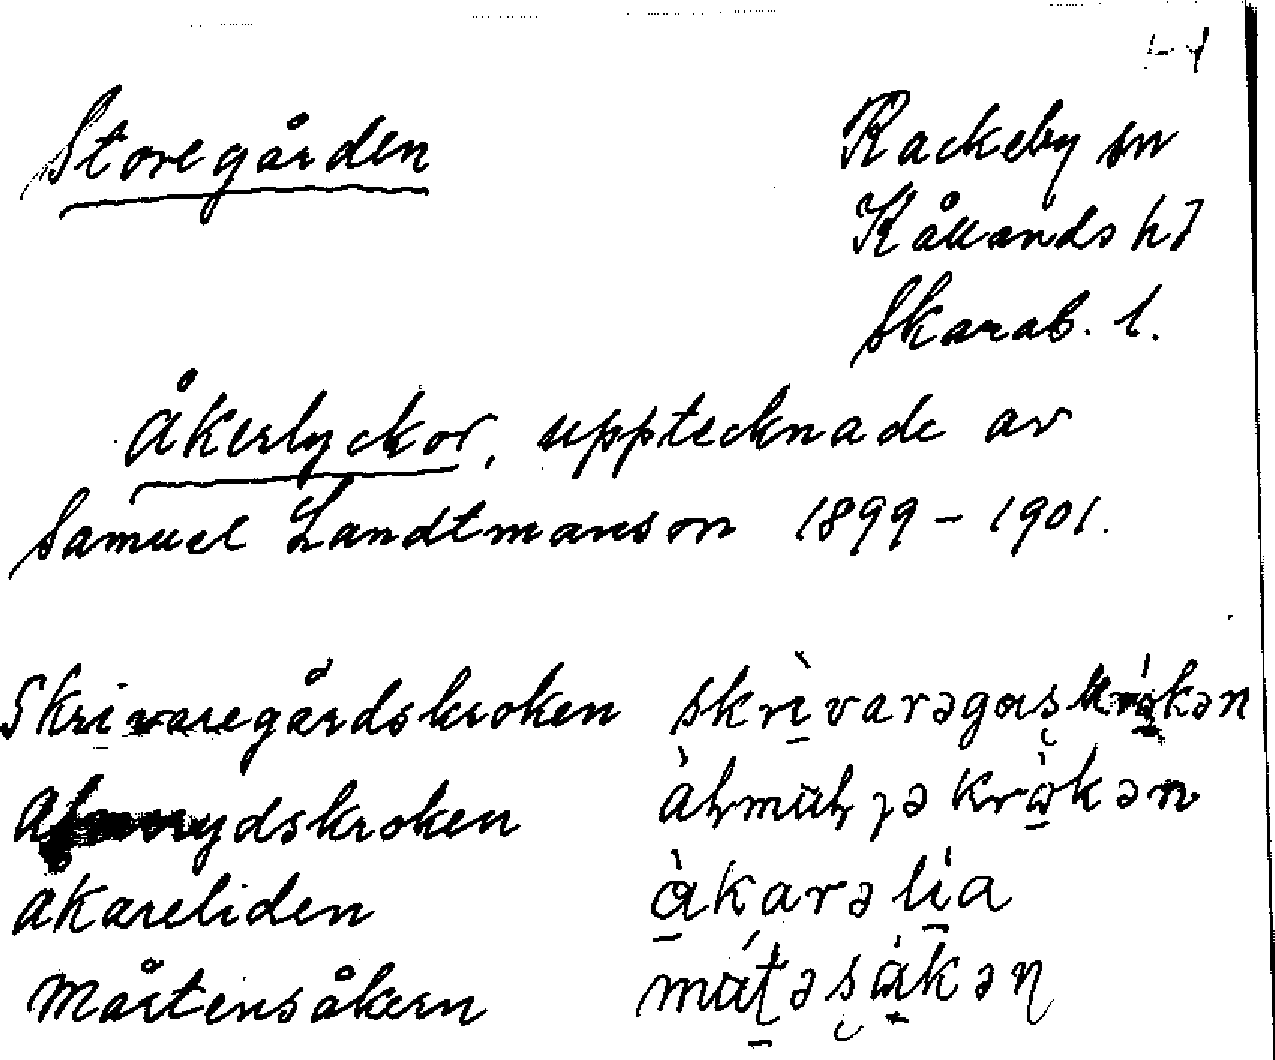 Storegården
Rackeby sn
Kållands hd
Skarab. l.
Åkerlyckor, upptecknade av
Samuel Landtmanson 1899-1901.
Skrivaregårdskroken
skrìvarəgaʂkrokən
krokən
Akareliden
àkarəlía
Mårtensåkern